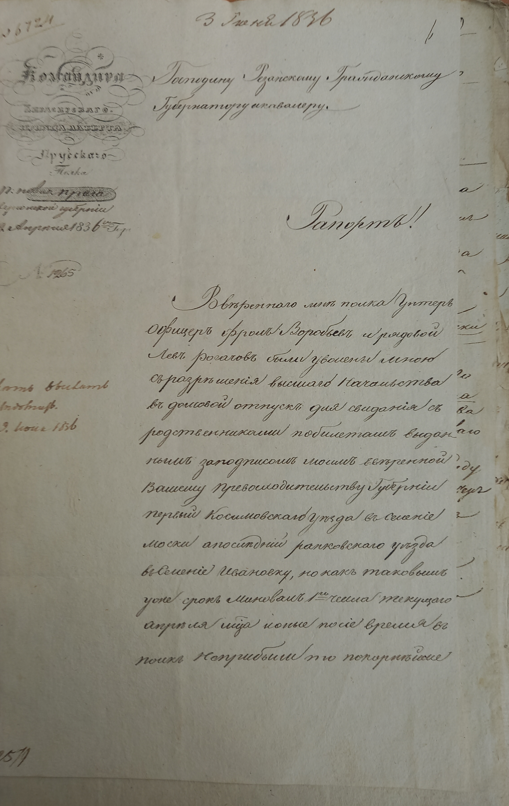 3 Июня 1836
Командира
Прусского
Полка
Апреля 1836
№ 1265
Господину Рязанскому Гражданскому
Губернатору и кавалеру.
Рапортъ!
Ввѣреннаго мнѣ полка Унтеръ
Офицеръ Фролъ Воробьевъ и рядовой
Левъ Рогачовъ были уволены мною
съ разрѣшения высшаго Начальства
въ домовой отпускъ для свидания съ
родственниками по билетамъ выдан
нымъ за подписомъ моимъ ввѣренной
Вашему Превосходительству Губернiи
первый Косимовскаго уѣзда въ Селенiе
а послѣднiй ранковскаго уѣзда
въ Селенiе Ивановку, но какъ таковымъ
уже срокъ миновалъ 1го числа текущаго
апреля мца и оные после время въ
полкъ неприбыли то покорнѣйше